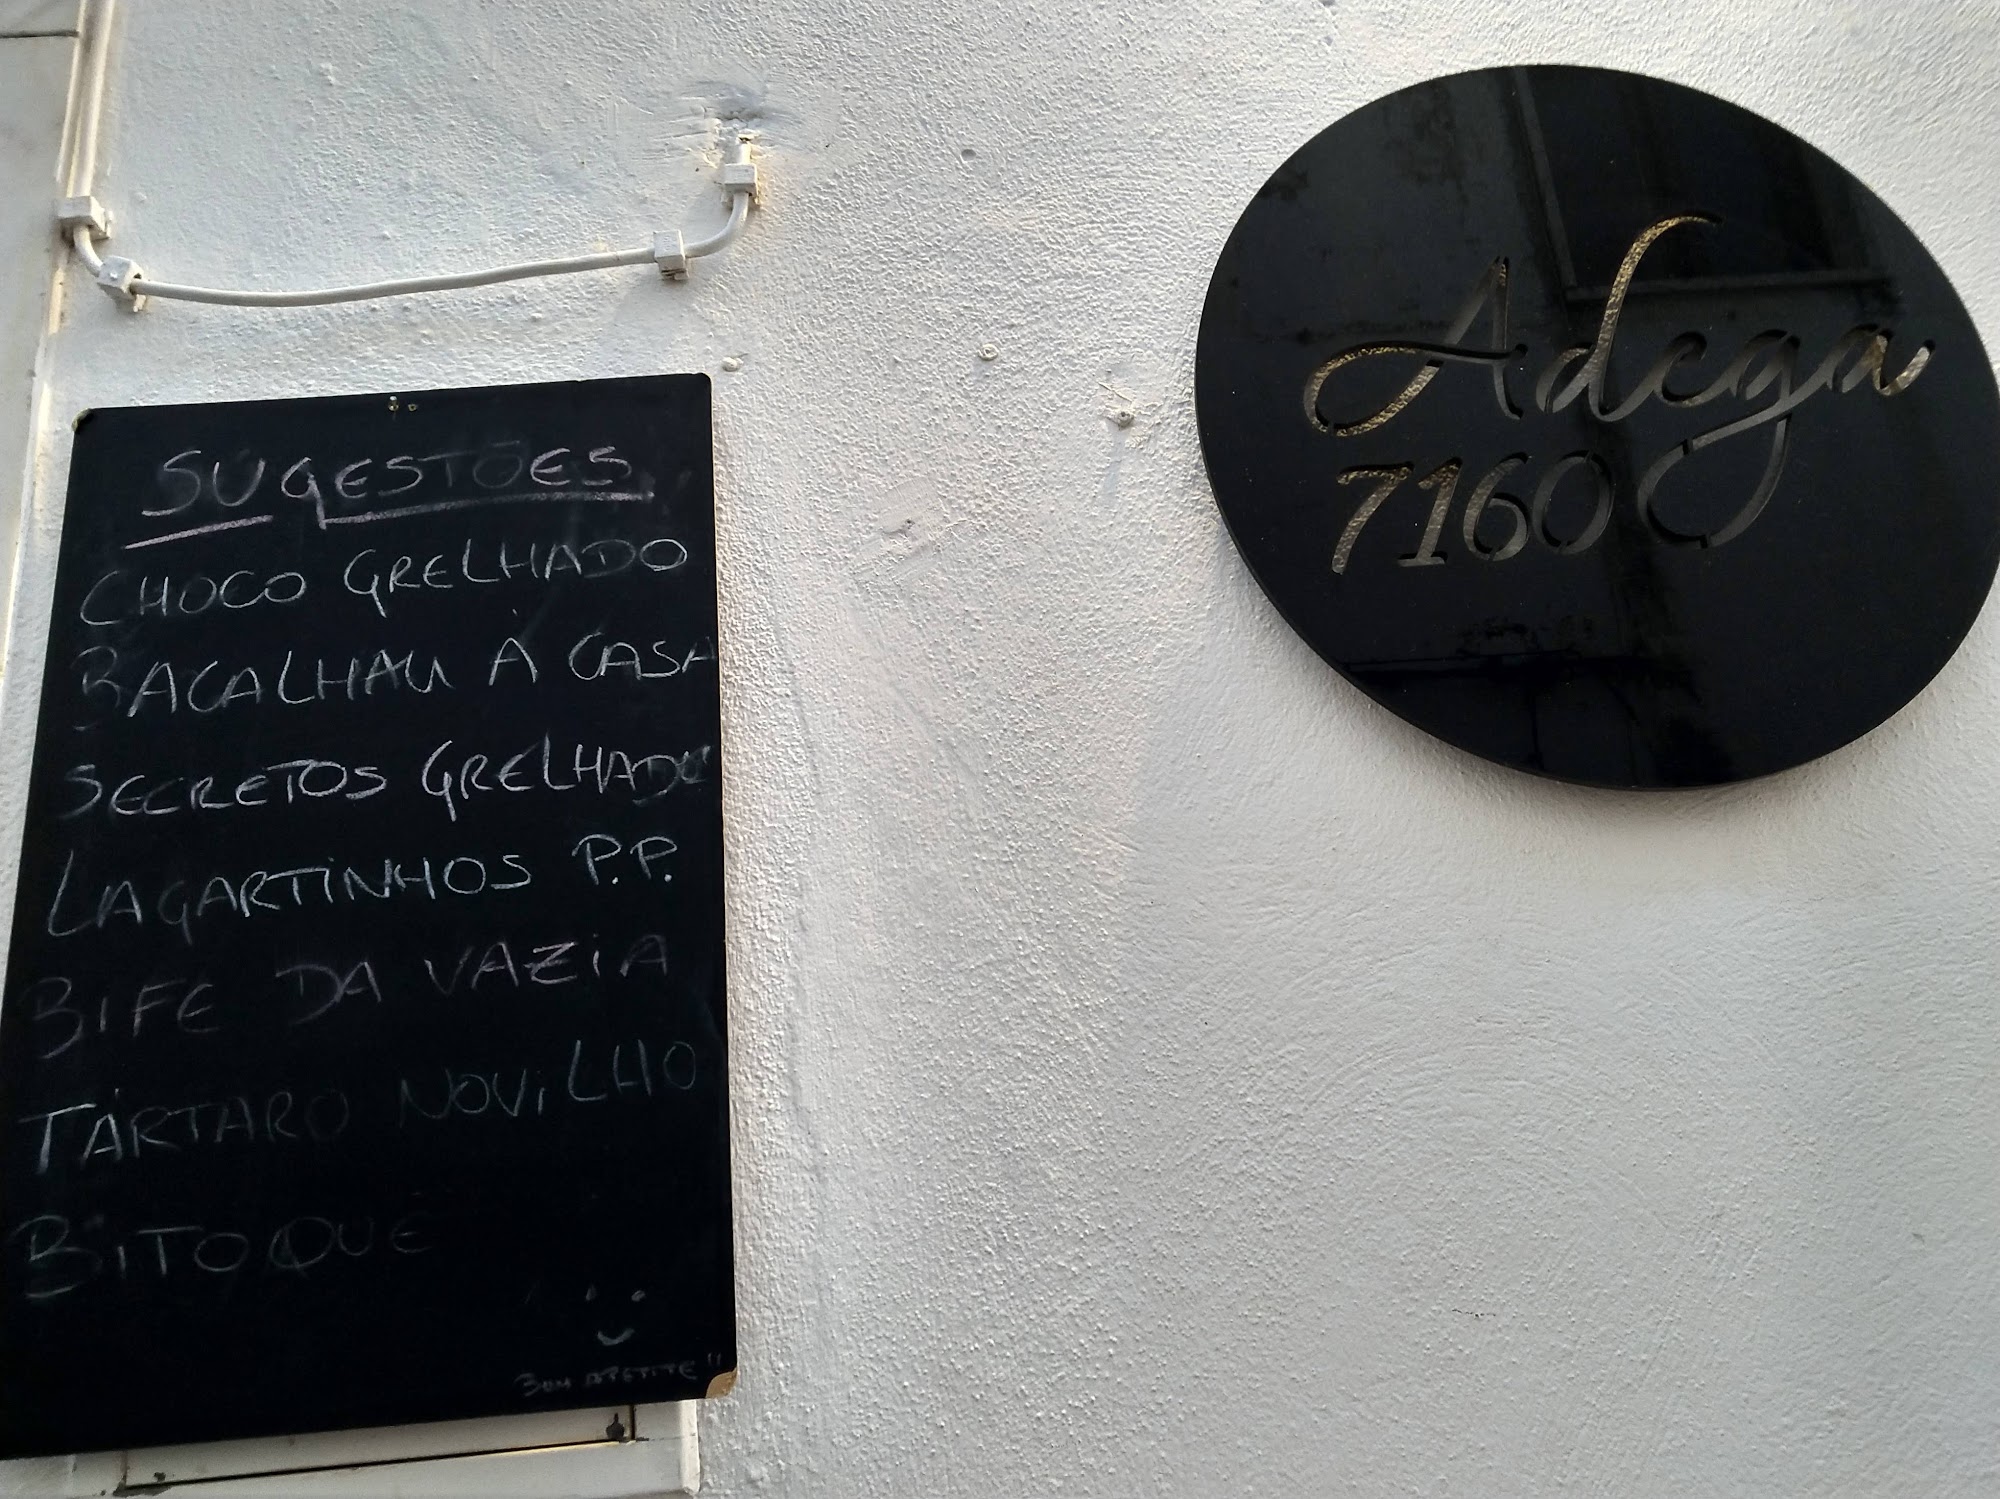 SUGESTÕES
CHOCO GRELHADO
BACALHAU À CASA
SECRETOS GRELHADO
LAGARTINHOS P.P.
BIFE DA VAZIA
TÁRTARO NOVILHO
BITOQUE
BOM APETITE!!
Adega
7160